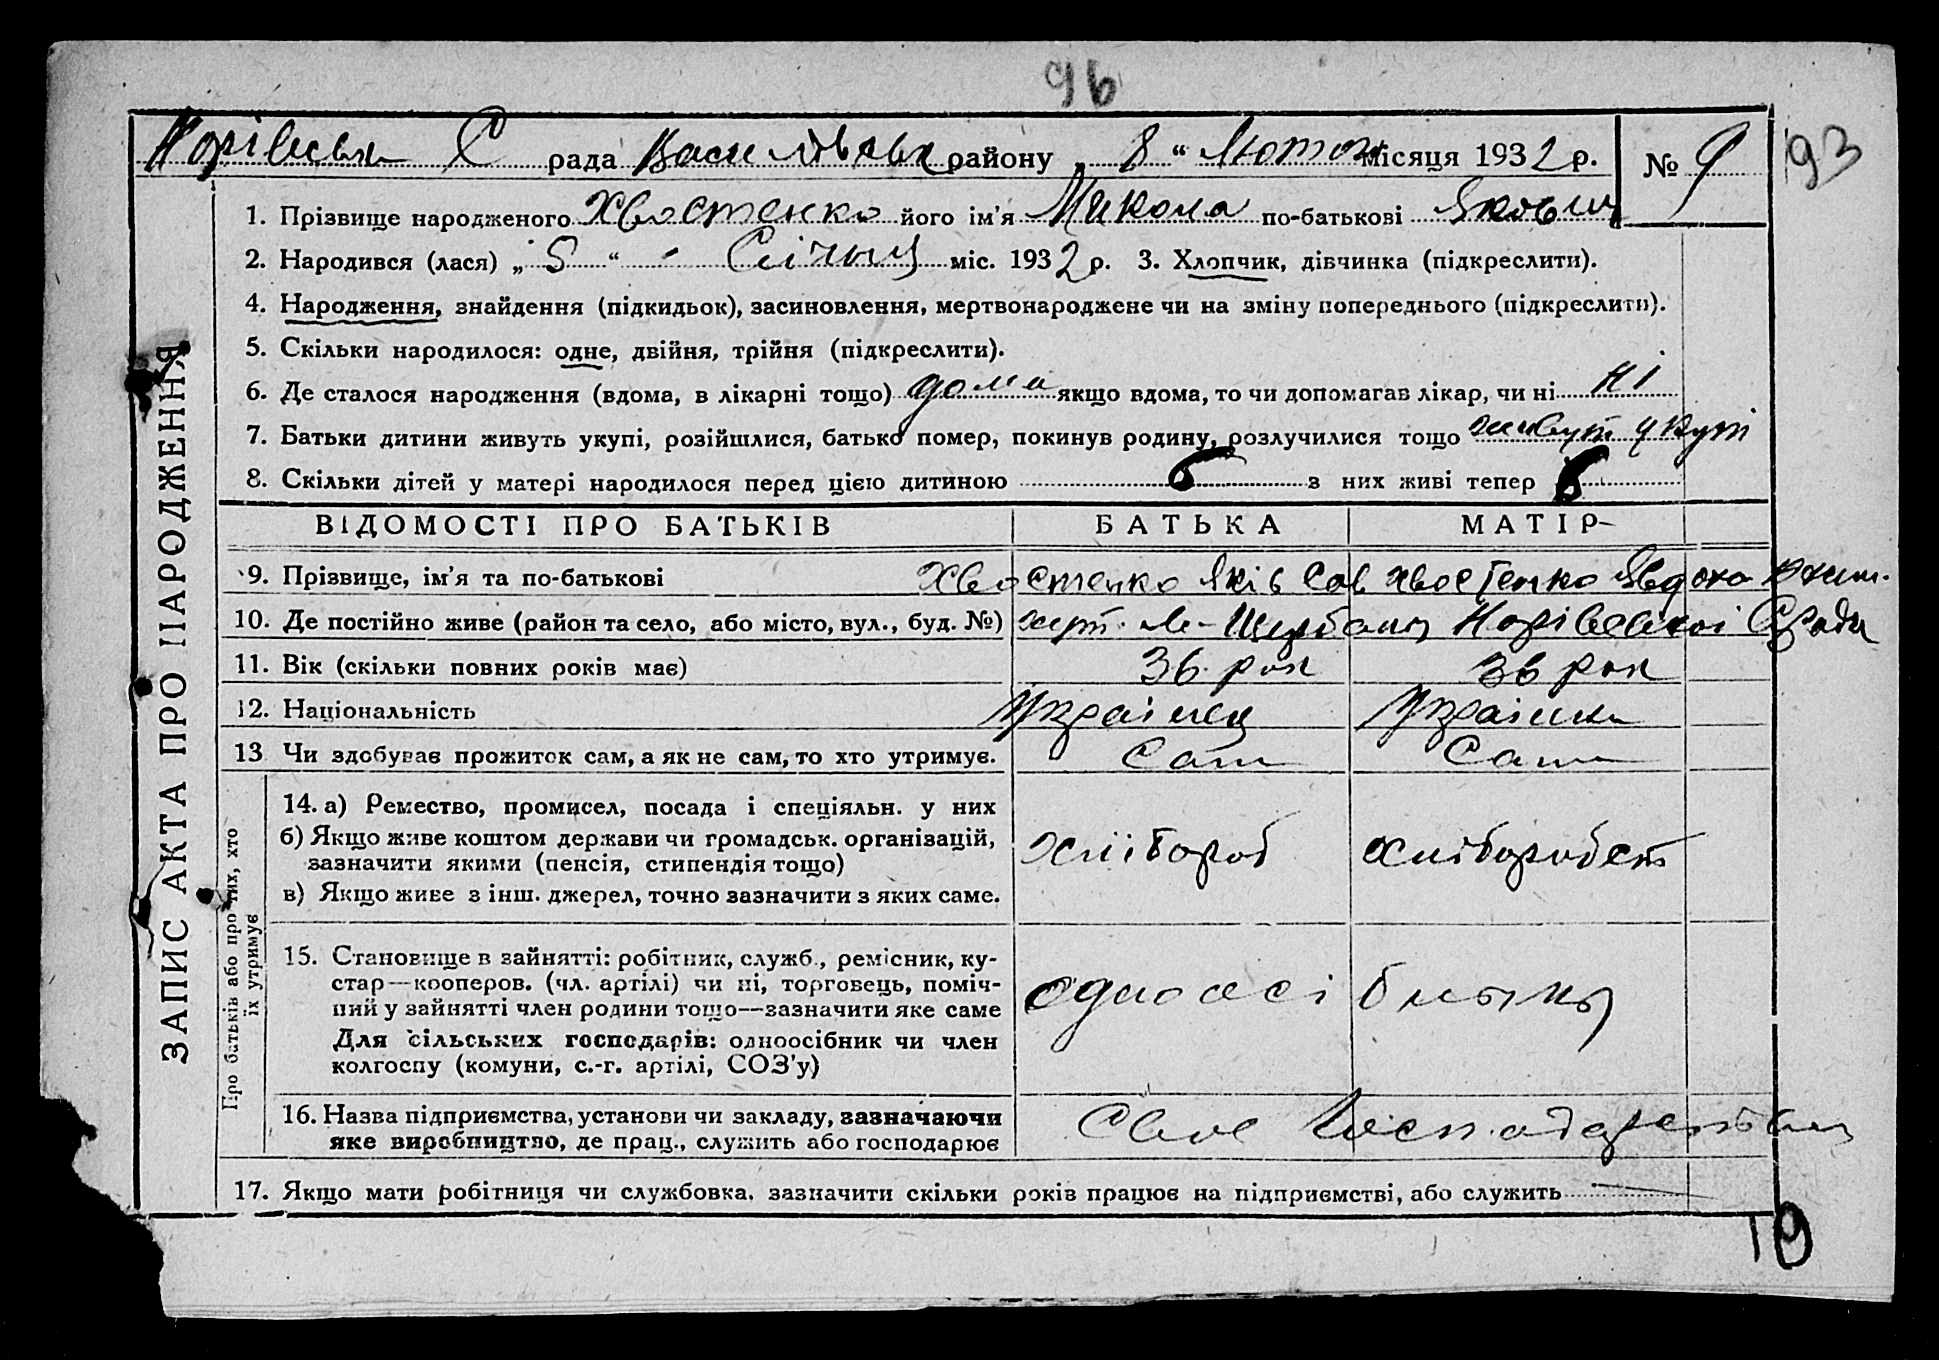 96
С рада Васильівськ району „ 8 “ Лютого місяця 1932 р. № 9
93
1. Прізвище народженого Хвостенко його ім'я Микола по-батькові Якович
2. Народився (лася) „ 5 “ Січня міс. 1932 р. 3. Хлопчик, дівчинка (підкреслити).
4. Народження, знайдення (підкидьок), засиновлення, мертвонароджене чи на зміну попереднього (підкреслити).
5. Скільки народилося: одне, двійня, трійня (підкреслити).
6. Де сталося народження (вдома, в лікарні тощо) дома якщо вдома, то чи допомагав лікар, чи ні ні
7. Батьки дитини живуть укупі, розійшлися, батько помер, покинув родину, розлучилися тощо живут укупі
8. Скільки дітей у матері народилося перед цією дитиною 6 з них живі тепер 6
ВІДОМОСТІ ПРО БАТЬКІВ БАТЬКА МАТІР
9. Прізвище, ім'я та по-батькові Хвостенко Яків Сав Хвостенко Явдоха
10. Де постійно живе (район та село, або місто, вул., буд. №) хут. Сради
11. Вік (скільки повних років має) 36 рок 36 рок
12. Національність Українец Українка
13 Чи здобуває прожиток сам, а як не сам, то хто утримує. Сам Сама
14. а) Ремество, промисел, посада і спеціяльн. у них
б) Якщо живе коштом держави чи громадськ. організацій,
зазначити якими (пенсія, стипендія тощо) хлібороб хліборобст
в) Якщо живе з інш. джерел, точно зазначити з яких саме.
15. Становище в зайнятті: робітник, служб., ремісник, ку-
стар—кооперов. (чл. артілі) чи ні, торговець, поміч-
ний у зайнятті член родини тощо—зазначити яке саме
Для сільських господарів: одноосібник чи член
колгоспу (комуни, с.-г. артілі, СОЗ'у)
одноосібники
16. Назва підприємства, установи чи закладу, зазначаючи
яке виробництво, де прац., служить або господарює
Своє
17. Якщо мати робітниця чи службовка, зазначити скільки років працює на підприємстві, або служить
19
ЗАПИС АКТА ПРО НАРОДЖЕННЯ
Про батьків або про тих, хто
їх утримує